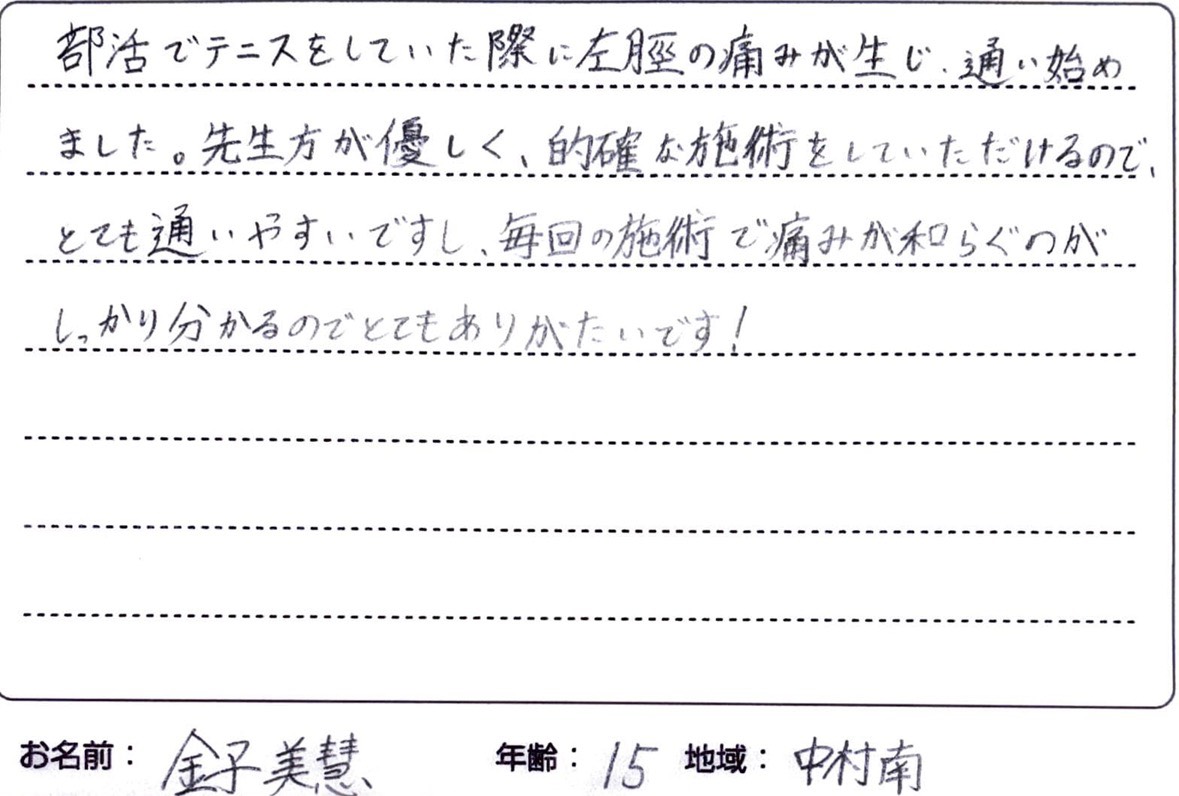 部活でテニスをしていた際に左脛の痛みが生じ、通い始め
ました。先生方が優しく、的確な施術をしていただけるので、
とても通いやすいですし、毎回の施術で痛みが和らぐのが
しっかり分かるのでとてもありがたいです!
お名前: 金子美慧 年齢: 15 地域: 中村南